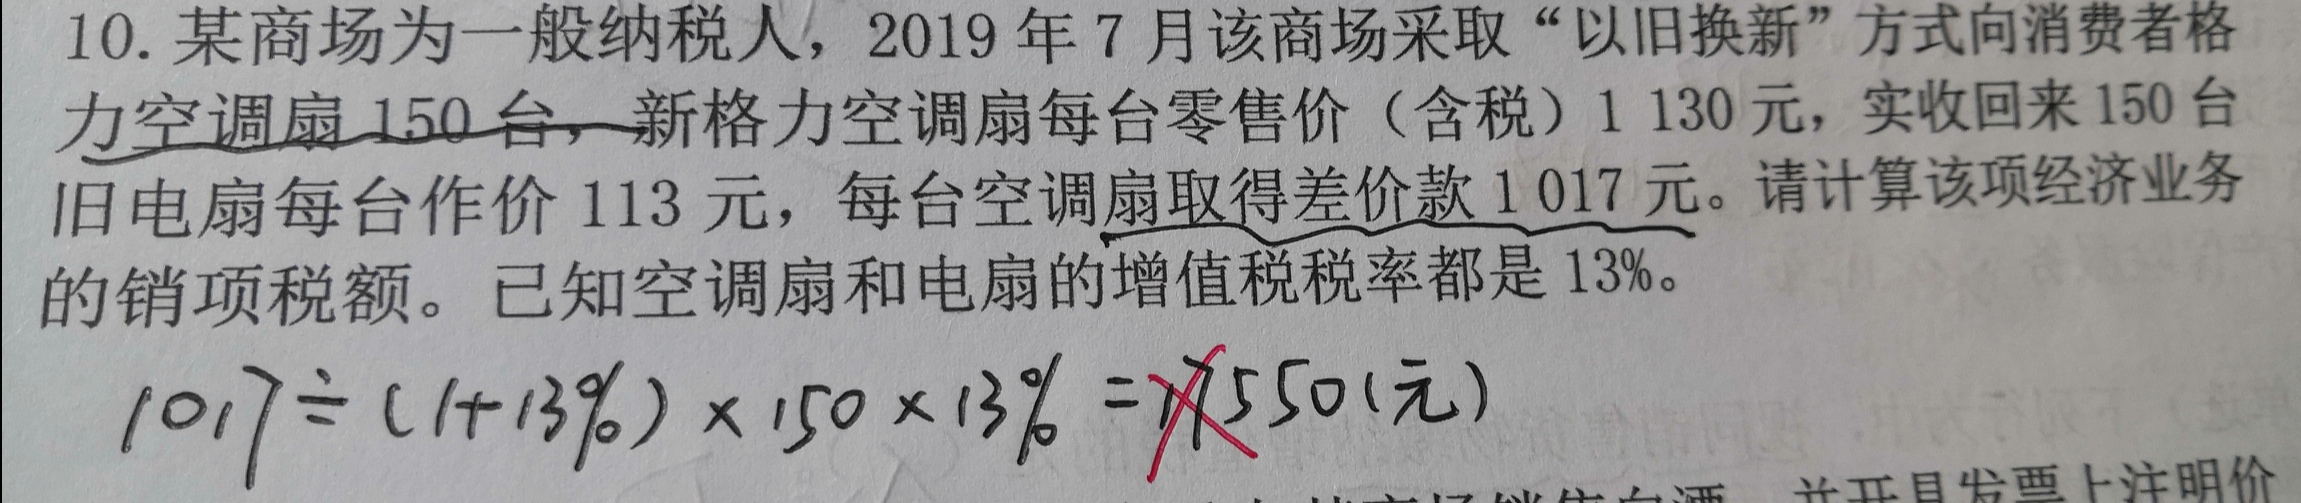 10. 某商场为一般纳税人，2019 年 7 月该商场采取“以旧换新”方式向消费者格
力空调扇 150 台，新格力空调扇每台零售价（含税）1 130 元，实收回来 150 台
旧电扇每台作价 113 元，每台空调扇取得差价款 1 017 元。请计算该项经济业务
的销项税额。已知空调扇和电扇的增值税税率都是 13%。
1017÷(1+13%)×150×13%=17550(元)
并开具发票上注明价